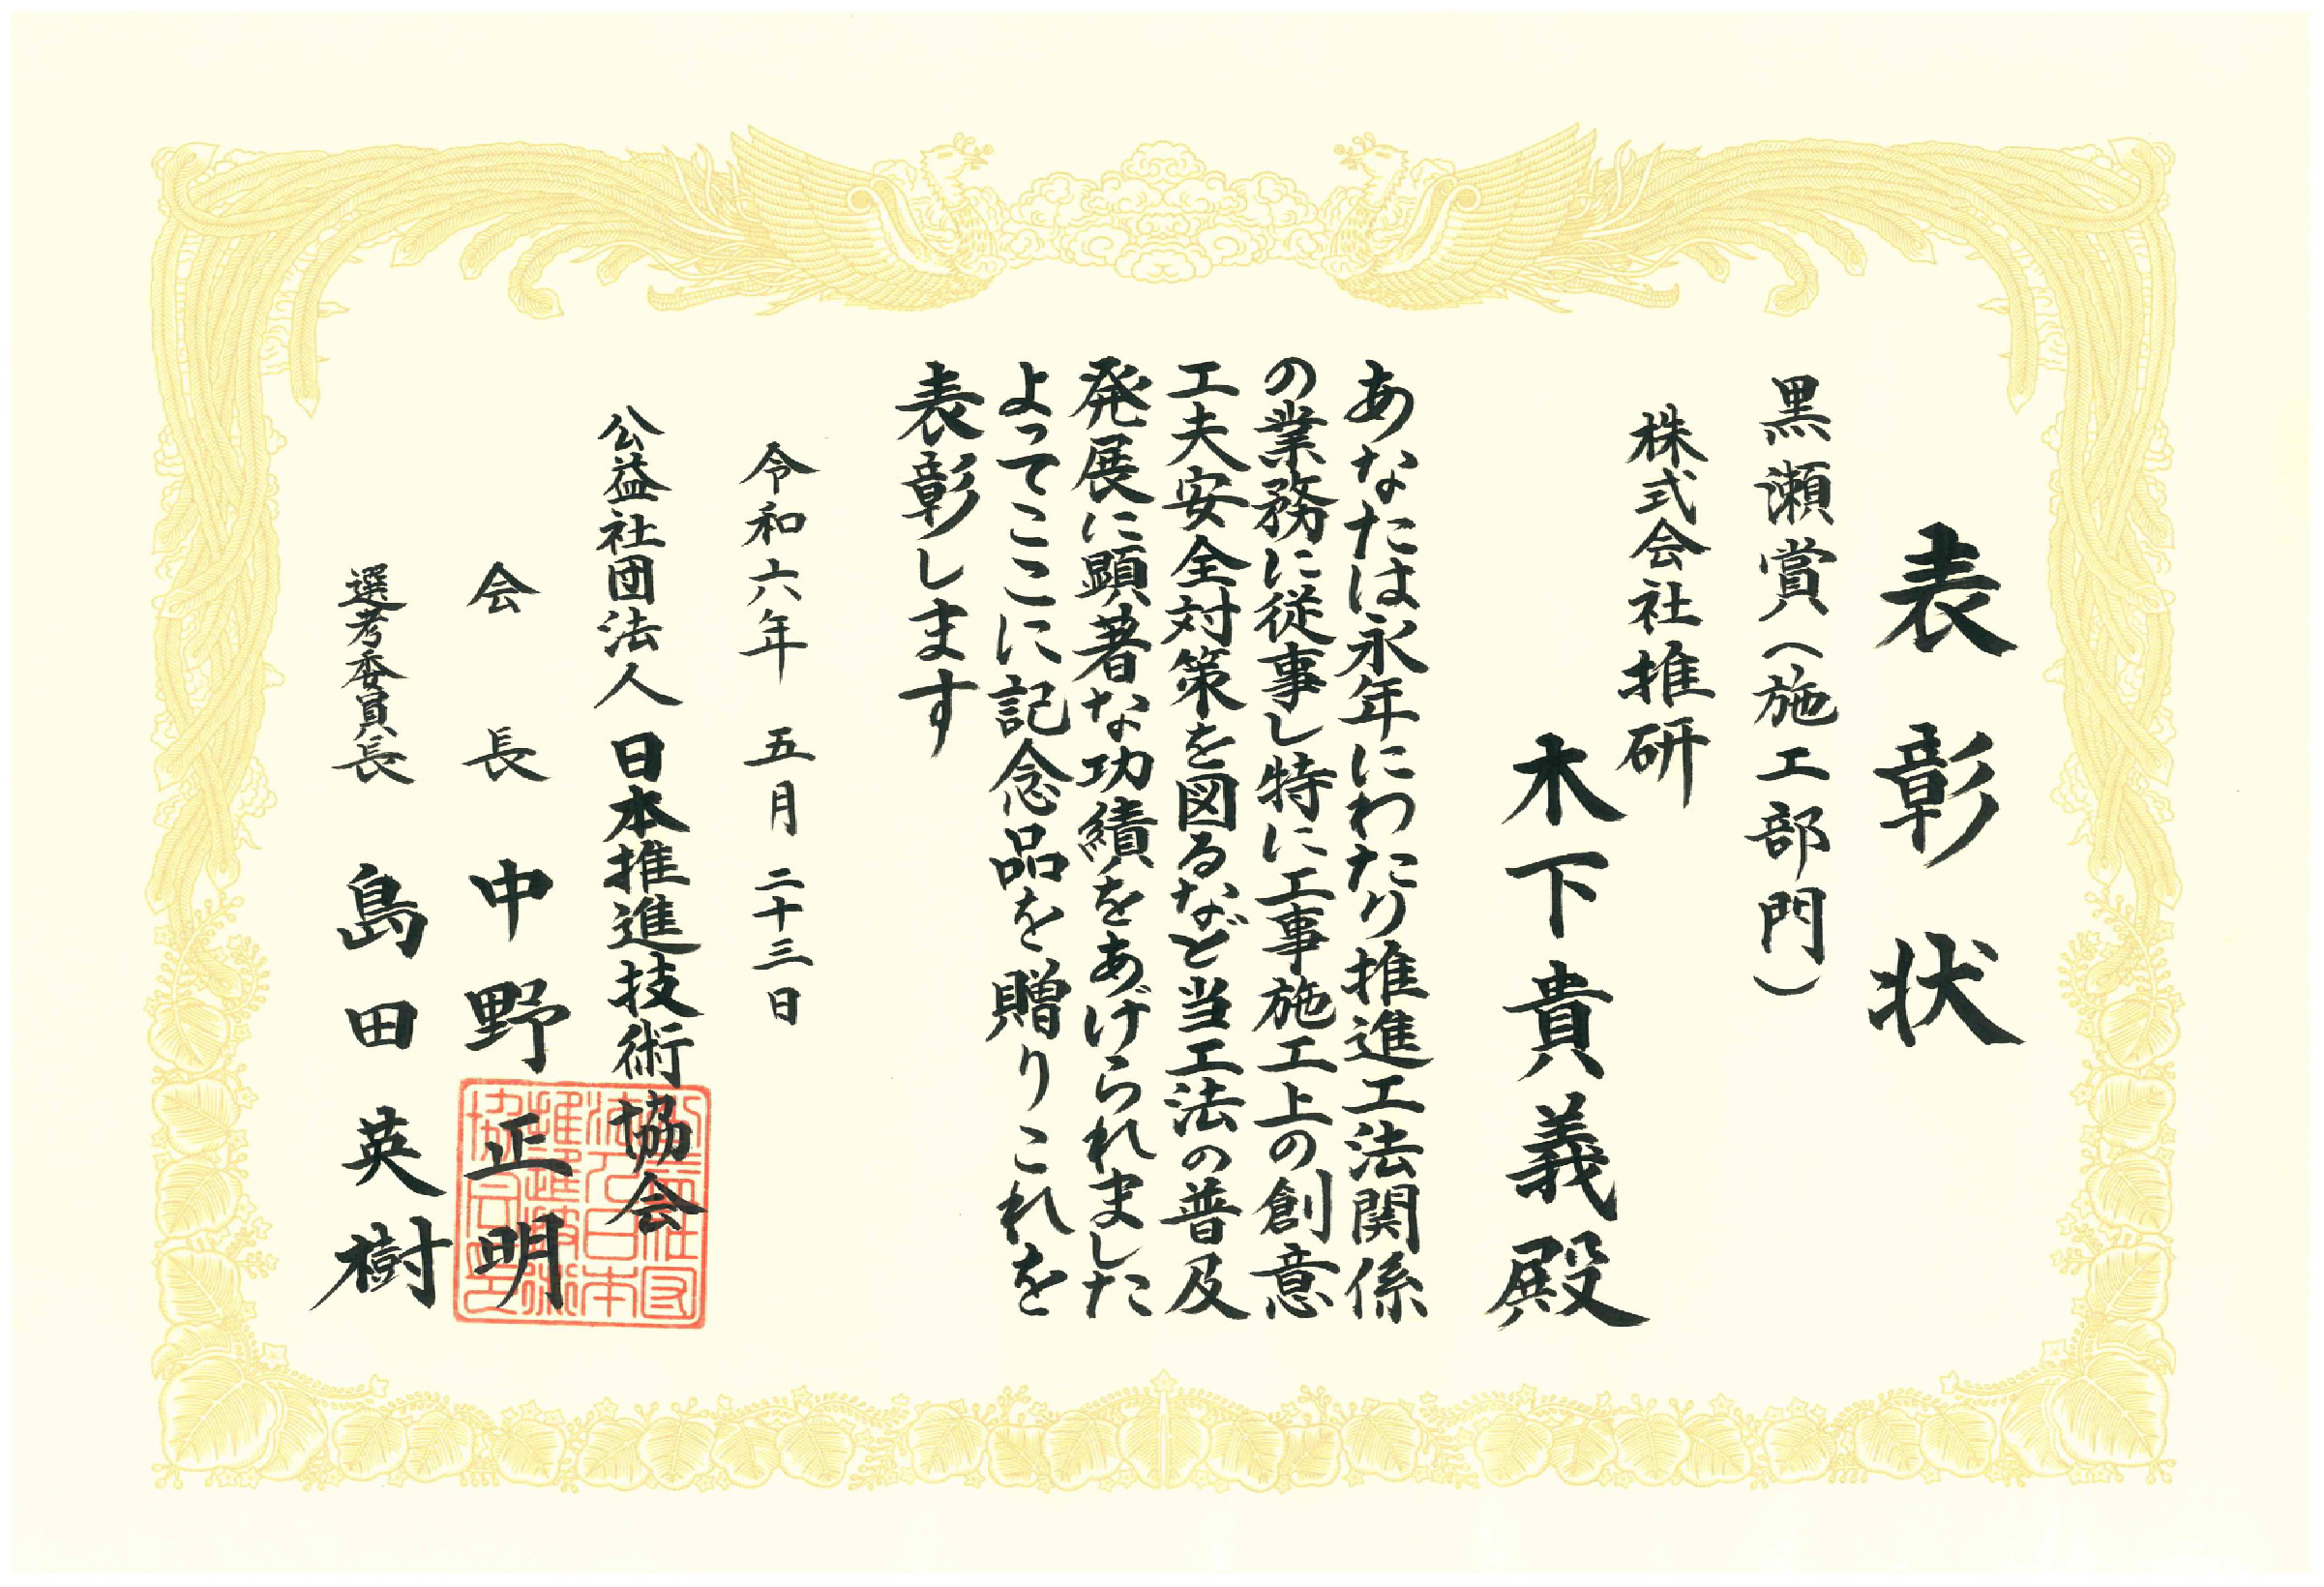 表彰状
黒瀬賞（施工部門）
株式会社推研
木下貴義殿
あなたは永年にわたり推進工法関係
の業務に従事し特に工事施工上の創意
工夫安全対策を図るなど当工法の普及
発展に顕著な功績をあげられました
よってここに記念品を贈りこれを
表彰します
令和六年 五月 二十三日
公益社団法人 日本推進技術協会
会長 中野正明
選考委員長 島田英樹